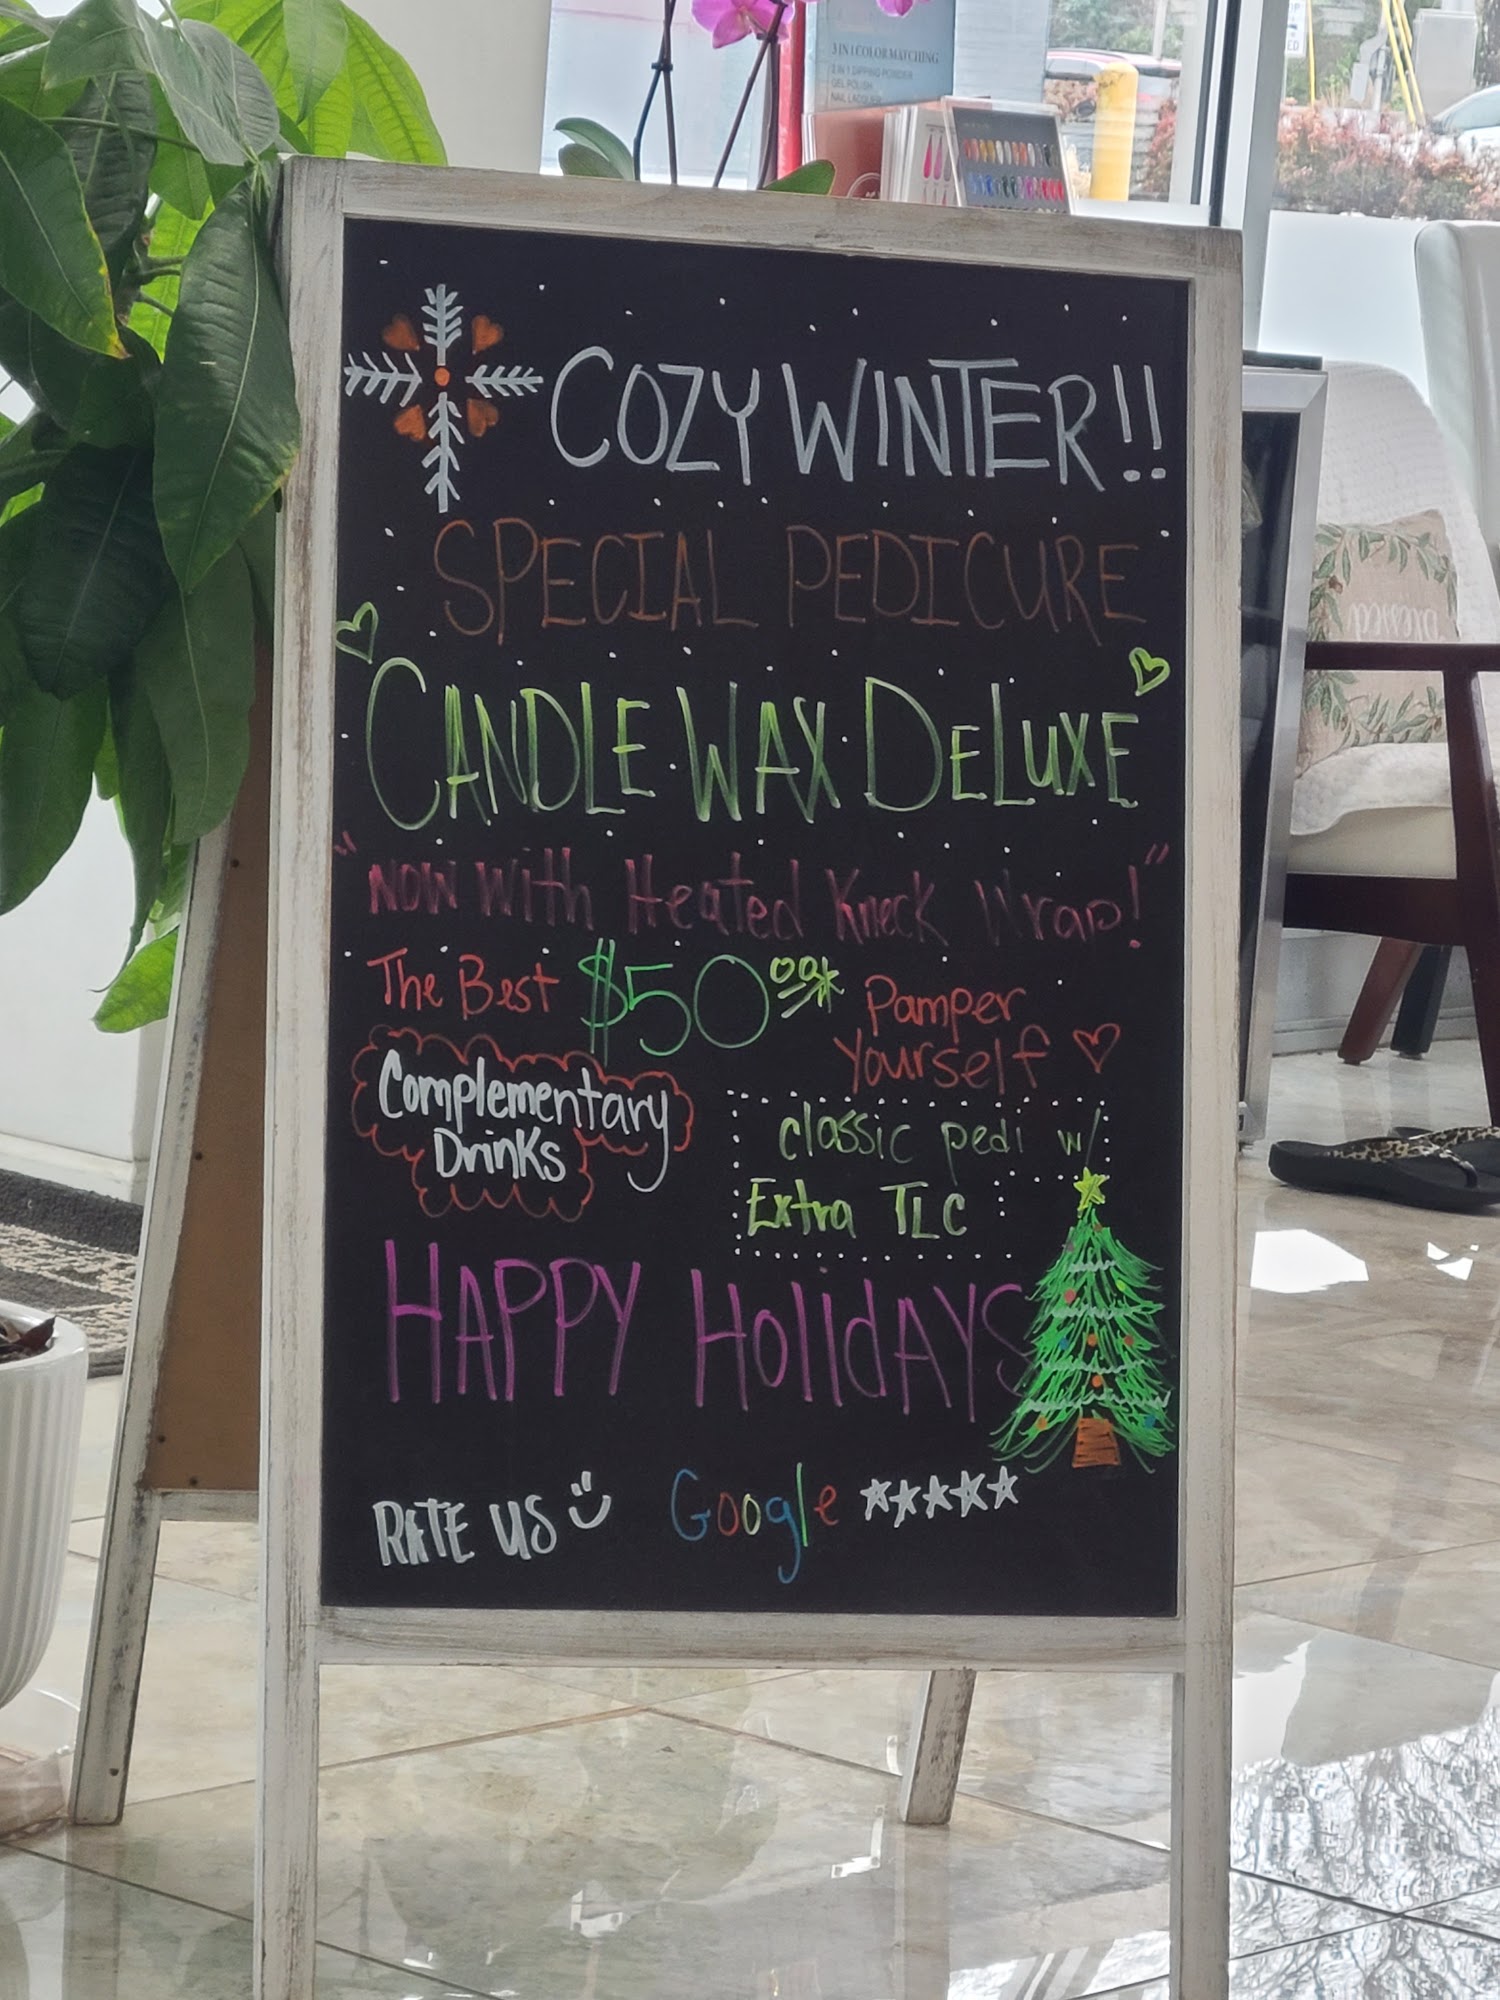 3 IN 1 COLOR MATCHING
2 IN 1 DIPPING POWDER
GEL POLISH
NAIL LACQUER
COZY WINTER!!
SPECIAL PEDICURE
CANDLE WAX DELUXE
"NOW WITH Heated Kneck Wrap!"
The Best $50.00* Pamper Yourself
Complementary
Drinks
classic pedi w/
Extra TLC
HAPPY HolidAYS
RATE US Google